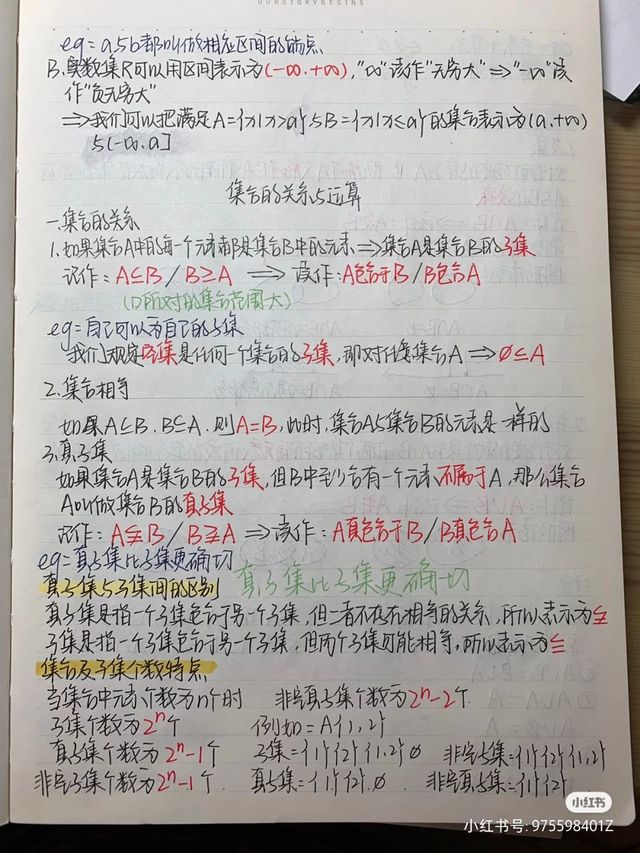 OURSTORYBEGINS
eg=a与b都叫做相应区间的端点
B.实数集R可以用区间表示为(-∞.+∞),"∞"读作"无穷大"⇒"-∞"读
作"负无穷大"
⇒我们可以把满足A={x|x>a}与B={x|x≤a}的集合表示为(a.+∞)
与(-∞.a]
集合的关系与运算
一.集合的关系
1.如果集合A中的每一个元素都是集合B中的元素⇒集合A是集合B的子集
记作:A⊆B/B⊇A ⇒读作:A包含于B/B包含A
(口所对的集合范围大)
eg=自己可以为自己的子集
我们规定空集是任何一个集合的子集,那对任意集合A⇒∅⊆A
2.集合相等
如果A⊆B.B⊆A.则A=B,此时.集合A与集合B的元素是一样的
3.真子集
如果集合A是集合B的子集,但B中至少含有一个元素不属于A,那么集合
A叫做集合B的真子集
记作:A⫋B/B⫌A ⇒读作:A真包含于B/B真包含A
eg=真子集比子集更确切
真子集与子集间的区别 真子集比子集更确切
真子集是指一个子集包含于另一个子集,但二者不存在相等的关系,所以表示为⫋
子集是指一个子集包含于另一个子集,但两个子集可能相等,所以表示为⊆
集合及子集个数特点
当集合中元素个数为n个时 非空真子集个数为2ⁿ-2个
子集个数为2ⁿ个 例如=A{1,2}
真子集个数为2ⁿ-1个 子集={1}{2}{1,2}∅ 非空子集={1}{2}{1,2}
非空子集个数为2ⁿ-1个 真子集={1}{2}.∅ 非空真子集={1}{2}
小红书
小红书号: 975598401Z